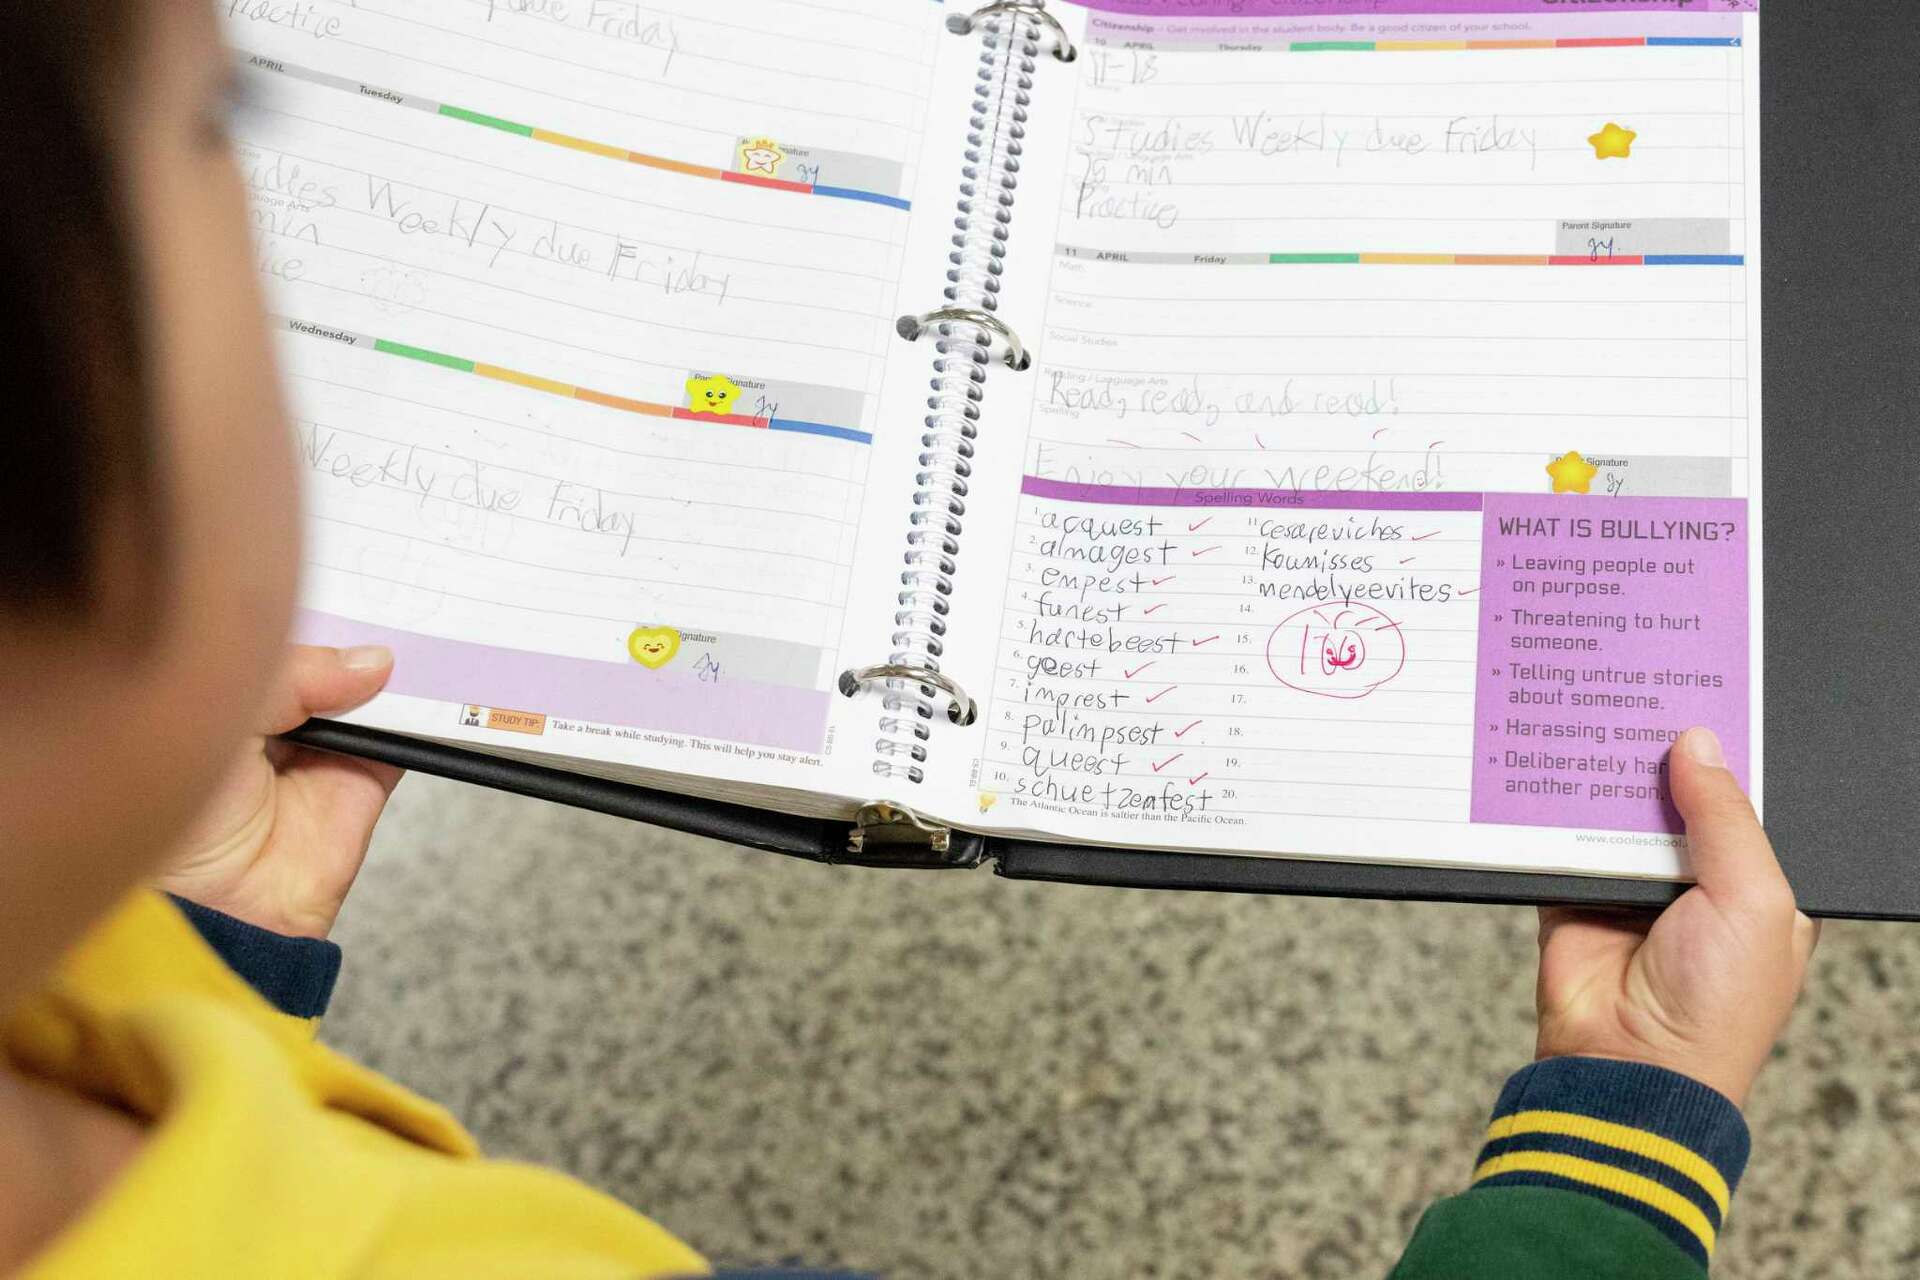 due Friday
Practice
APRIL
Tuesday
Signature
gy
Weekly due Friday
min
Wednesday
Signature
gy
Weekly due Friday
Signature
gy.
STUDY TIP:
Take a break while studying. This will help you stay alert.
Citizenship
Citizenship - Get involved in the student body. Be a good citizen of your school.
10 APRIL Thursday
Studies Weekly due Friday
Language Arts
min
Practice
Parent Signature
gy.
11 APRIL Friday
Math
Science
Social Studies
Reading / Language Arts
Read, read, and read!
Spelling
Enjoy your weekend!
Signature
gy.
Spelling Words
1. acquest
2. almagest
3. empest
4. funest
5. hartebeest
6. geest
7. imprest
8. palimpsest
9. queest
10. schuetzenfest
11. cesareviches
12. Koumisses
13. mendelyeevites
14.
15.
16.
17.
18.
19.
20.
100
The Atlantic Ocean is saltier than the Pacific Ocean.
WHAT IS BULLYING?
» Leaving people out
on purpose.
» Threatening to hurt
someone.
» Telling untrue stories
about someone.
» Harassing
» Deliberately
another person.
www.cooleschool.